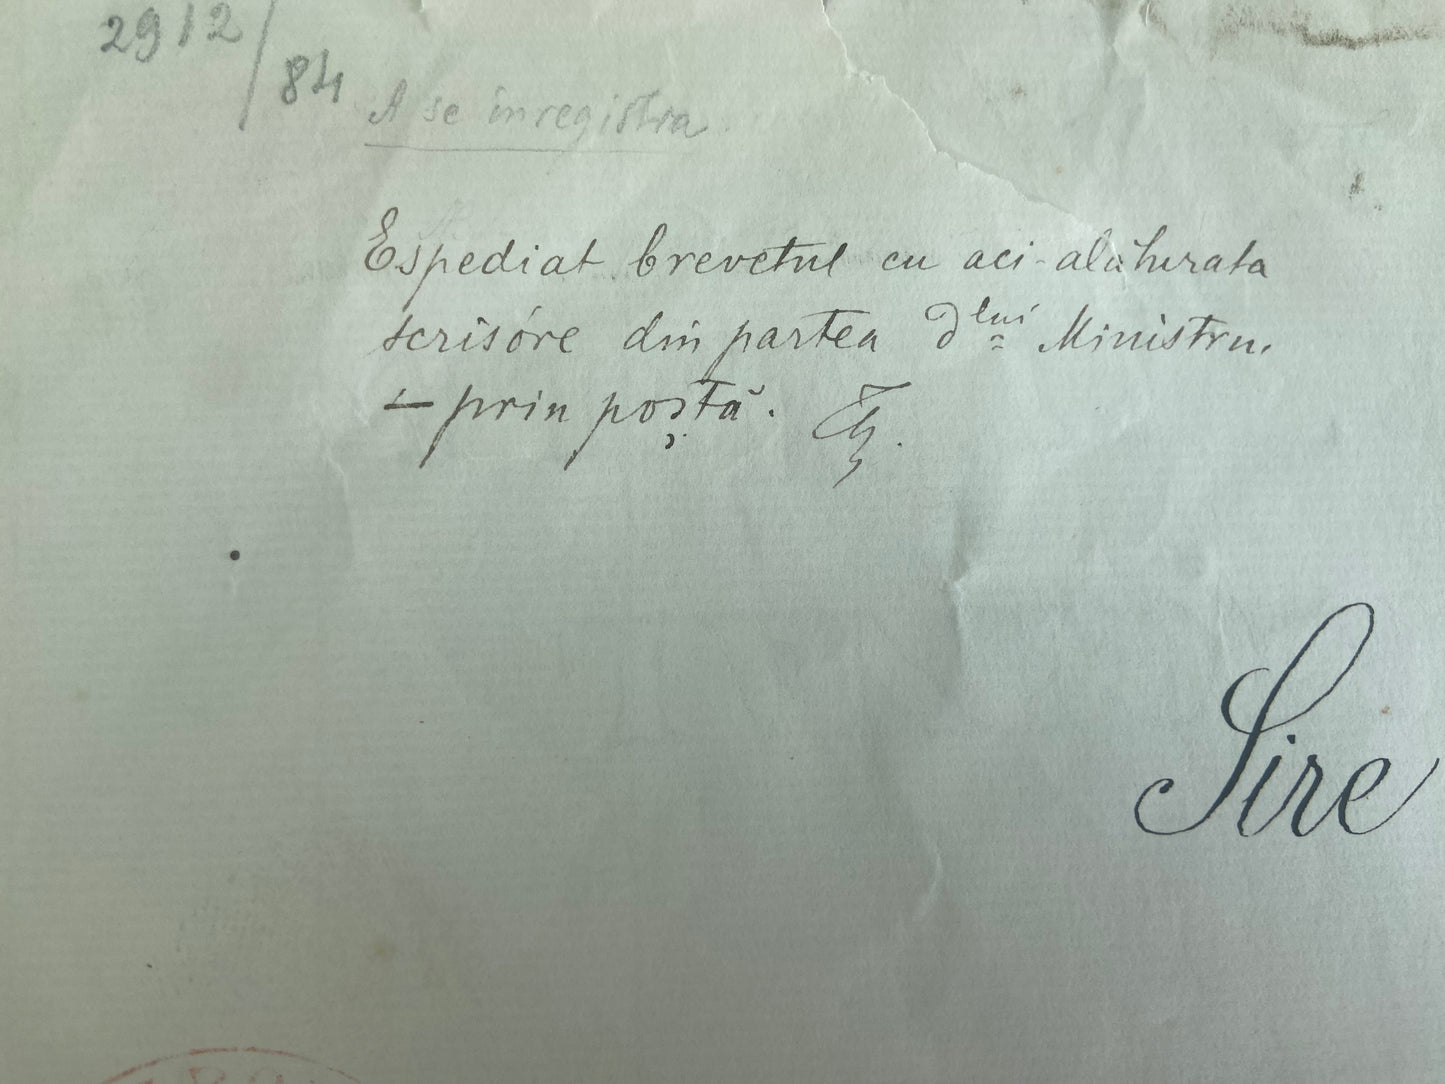 2912/84
A se inregistra
Espediat brevetul cu aci-alăturata
scrisóre din partea dlui Ministru,
– prin poștă.
Sire